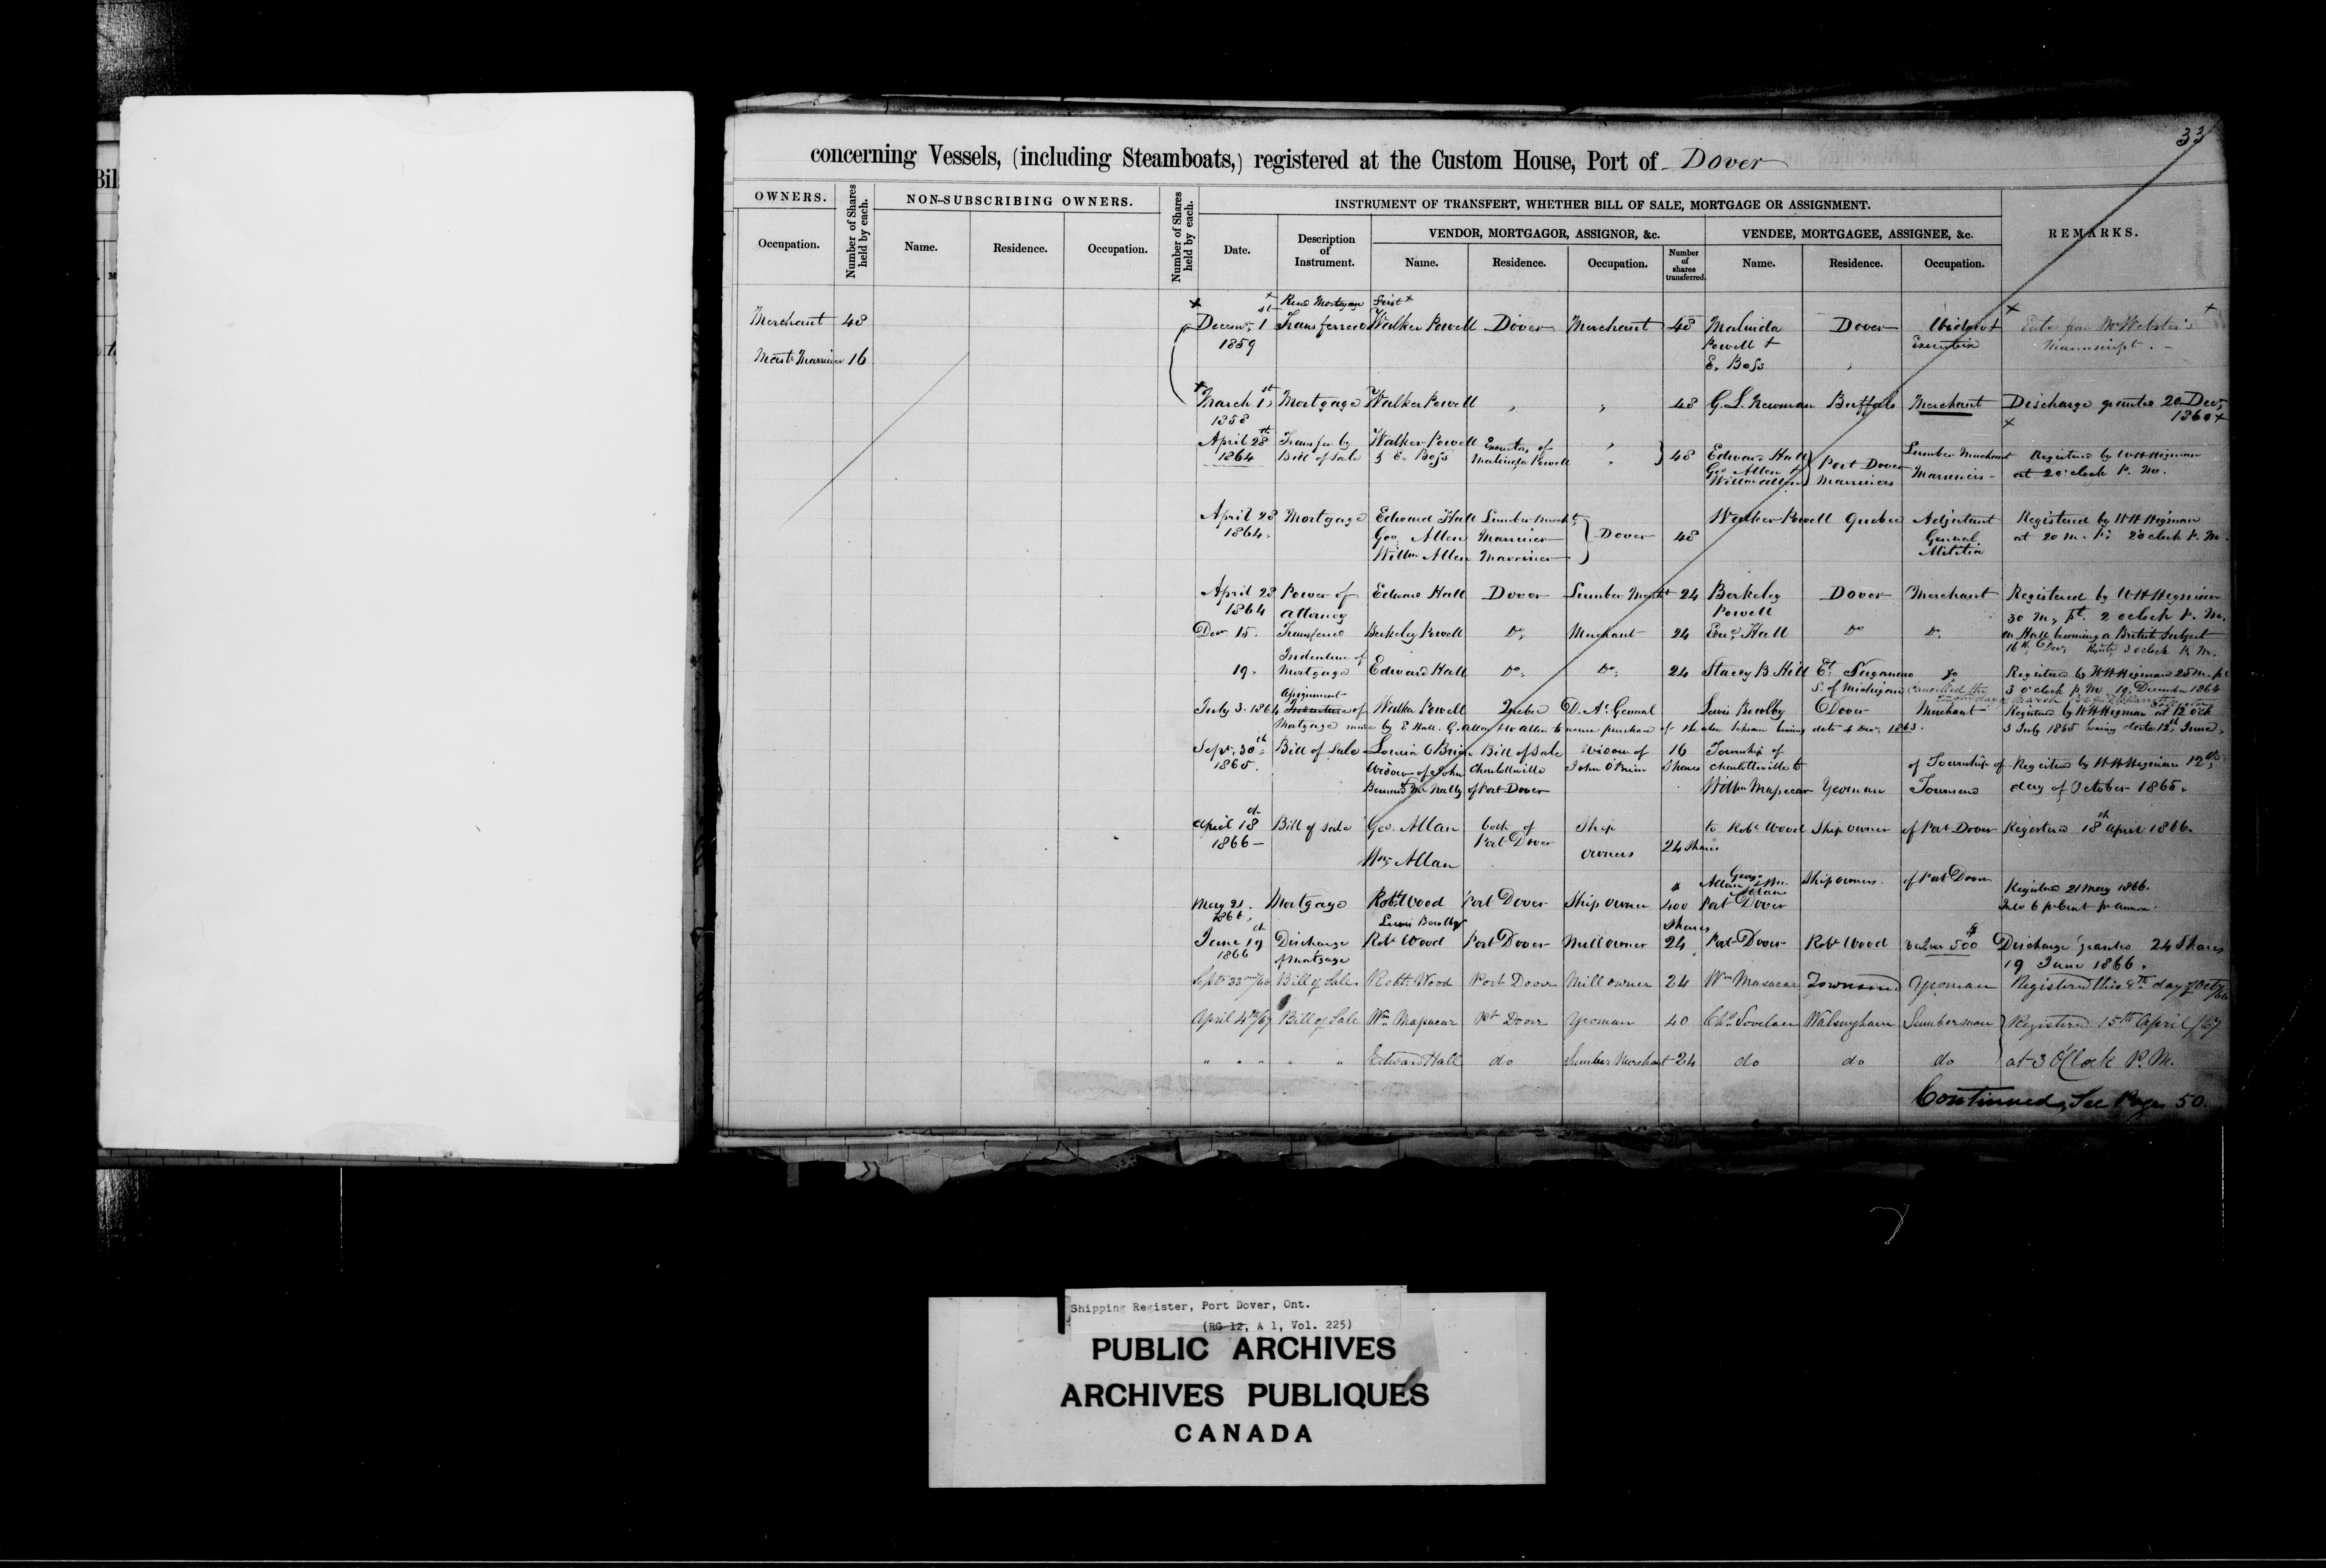 33
concerning Vessels, (including Steamboats,) registered at the Custom House, Port of Dover
OWNERS.
Number of Shares held by each.
NON-SUBSCRIBING OWNERS.
Number of Shares held by each.
INSTRUMENT OF TRANSFERT, WHETHER BILL OF SALE, MORTGAGE OR ASSIGNMENT.
REMARKS.
VENDOR, MORTGAGOR, ASSIGNOR, &c.
VENDEE, MORTGAGEE, ASSIGNEE, &c.
Occupation.
Name. Residence. Occupation.
Date. Description of Instrument.
Name. Residence. Occupation. Number of shares transferred. Name. Residence. Occupation.
Read Mortgage first
Merchant 48 Decemr 1st Transferred Walker Powell Dover Merchant 48 Malinda Dover
1859 Powell + Executrix manuscript.
Mastr Marriner 16 E. Boss
March 1st Mortgage Walker Powell " " 48 G. S. Newman Buffalo Merchant Discharge granted 20 Decr
1858 1860
April 28th Transfer by Walker Powell Executors of " 48 Edward Hall Lumber Merchant Registered by W H Hegman
1864 Bill of Sale & E. Boss Malinda Powell " Geo Allen & Port Dover at 2 oclock P. M.
Willm Allen Marriners Marriners
April 28 Mortgage Edward Hall Lumber Mercht Walker Powell Quebec Adjutant Registered by W H Hegman
1864. Geo. Allen Marriner Dover 48 General at 20 m. Pt 2 oclock P. M.
Willm Allen Marriner Militia
April 28 Power of Edward Hall Dover Lumber Mercht 24 Berkeley Dover Merchant Registered by W H Hegman
1864 attorney Powell 30 M, pt. 2 oclock P. M.
Decr 15. Transferred Berkeley Powell Do. Merchant 24 Edwd Hall Do Do. on Hall becoming a British Subject
16th Decr 3 oclock P. M.
Indenture of
19. Mortgage Edward Hall Do. Do. 24 Stacey B Hill Et Saganaw Registered by W H Hegman 25 m. pt
S. of Michigan Cancelled the 3 o'clock P M 19 December 1864
Assignment
July 3. 1864 Indenture of Walker Powell Quebec D. At General Lewis Bowlby Dover Merchant Registered by W H Hegman at 12 Ock
Mortgage made by E Hall. G. Allen & W Allen to secure purchase of 3 July 1865 bearing date 12th June.
Sept. 30th Bill of Sale O Brien Bill of Sale Widow of 16 Township of
1865. Widow of John Charlotteville John O'Brien Shares Charlotteville to of Township of Registered by W H Hegman 12th
of Port Dover Willm Mapecar Yeoman Townsend day of October 1865.
April 18th Bill of Sale Geo. Allan both of Ship to Robt Wood Ship owner of Port Dover Registered 18th April 1866.
1866 Port Dover
Wm Allan owners 24 Shares
George
Allan & Wm. Ship owners. of Port Dover
Allan
May 21. Mortgage Robt Wood Port Dover Ship owner $400 Port Dover Registered 21 May 1866.
1866. 6 pr Cent pr annum.
Lewis Bowlby Shares
June 19th Discharge Robt Wood Port Dover Mill owner 24 Port Dover Robt Wood value $500 Discharge granted 24 Shares
1866 of mortgage 19 June 1866.
Bill of Sale Robt Wood Port Dover Mill owner 24 Wm Masacar Townsend Yeoman Registered this 8th day of Oct/66
April 4th/67 Bill of Sale Wm Mapacar Pt Dover Yeoman 40 Walsingham Lumberman Registered 15th April/67
" " " " " Edward Hall do Lumber Merchant 24 do do do at 3 O'Clock P. M.
Continued, See Page 50.
Shipping Register, Port Dover, Ont.
(RG 12, A 1, Vol. 225)
PUBLIC ARCHIVES
ARCHIVES PUBLIQUES
CANADA